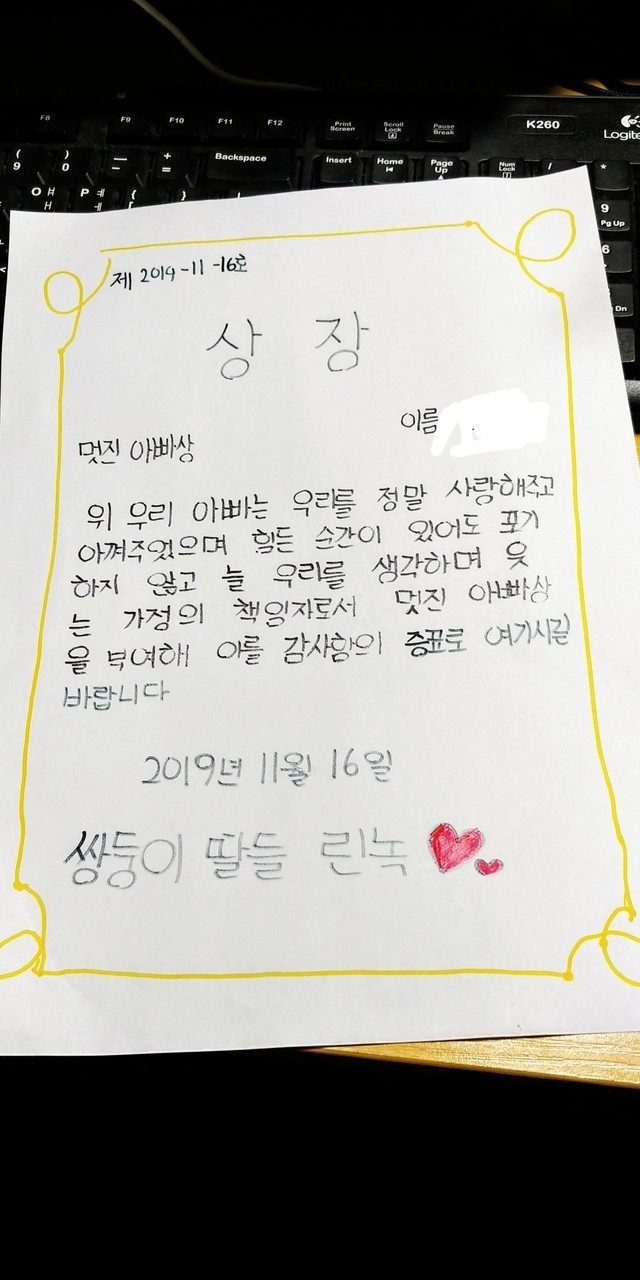 F8 F9 F10 F11 F12 Print Screen Scroll Lock Pause Break K260
( 9 ) 0 — + = Backspace Insert Home Page Up Num Lock / *
ㅐ ㅔ { }
9 Pg Up
6
Dn
제 2019-11-16호
상 장
이름
멋진 아빠상
위 우리 아빠는 우리를 정말 사랑해주고
아껴주었으며 힘든 순간이 있어도 포기
하지 않고 늘 우리를 생각하며 웃
는 가정의 책임자로서 멋진 아빠상
을 부여해 이를 감사함의 증표로 여기시길
바랍니다
2019년 11월 16일
쌍둥이 딸들 린녹